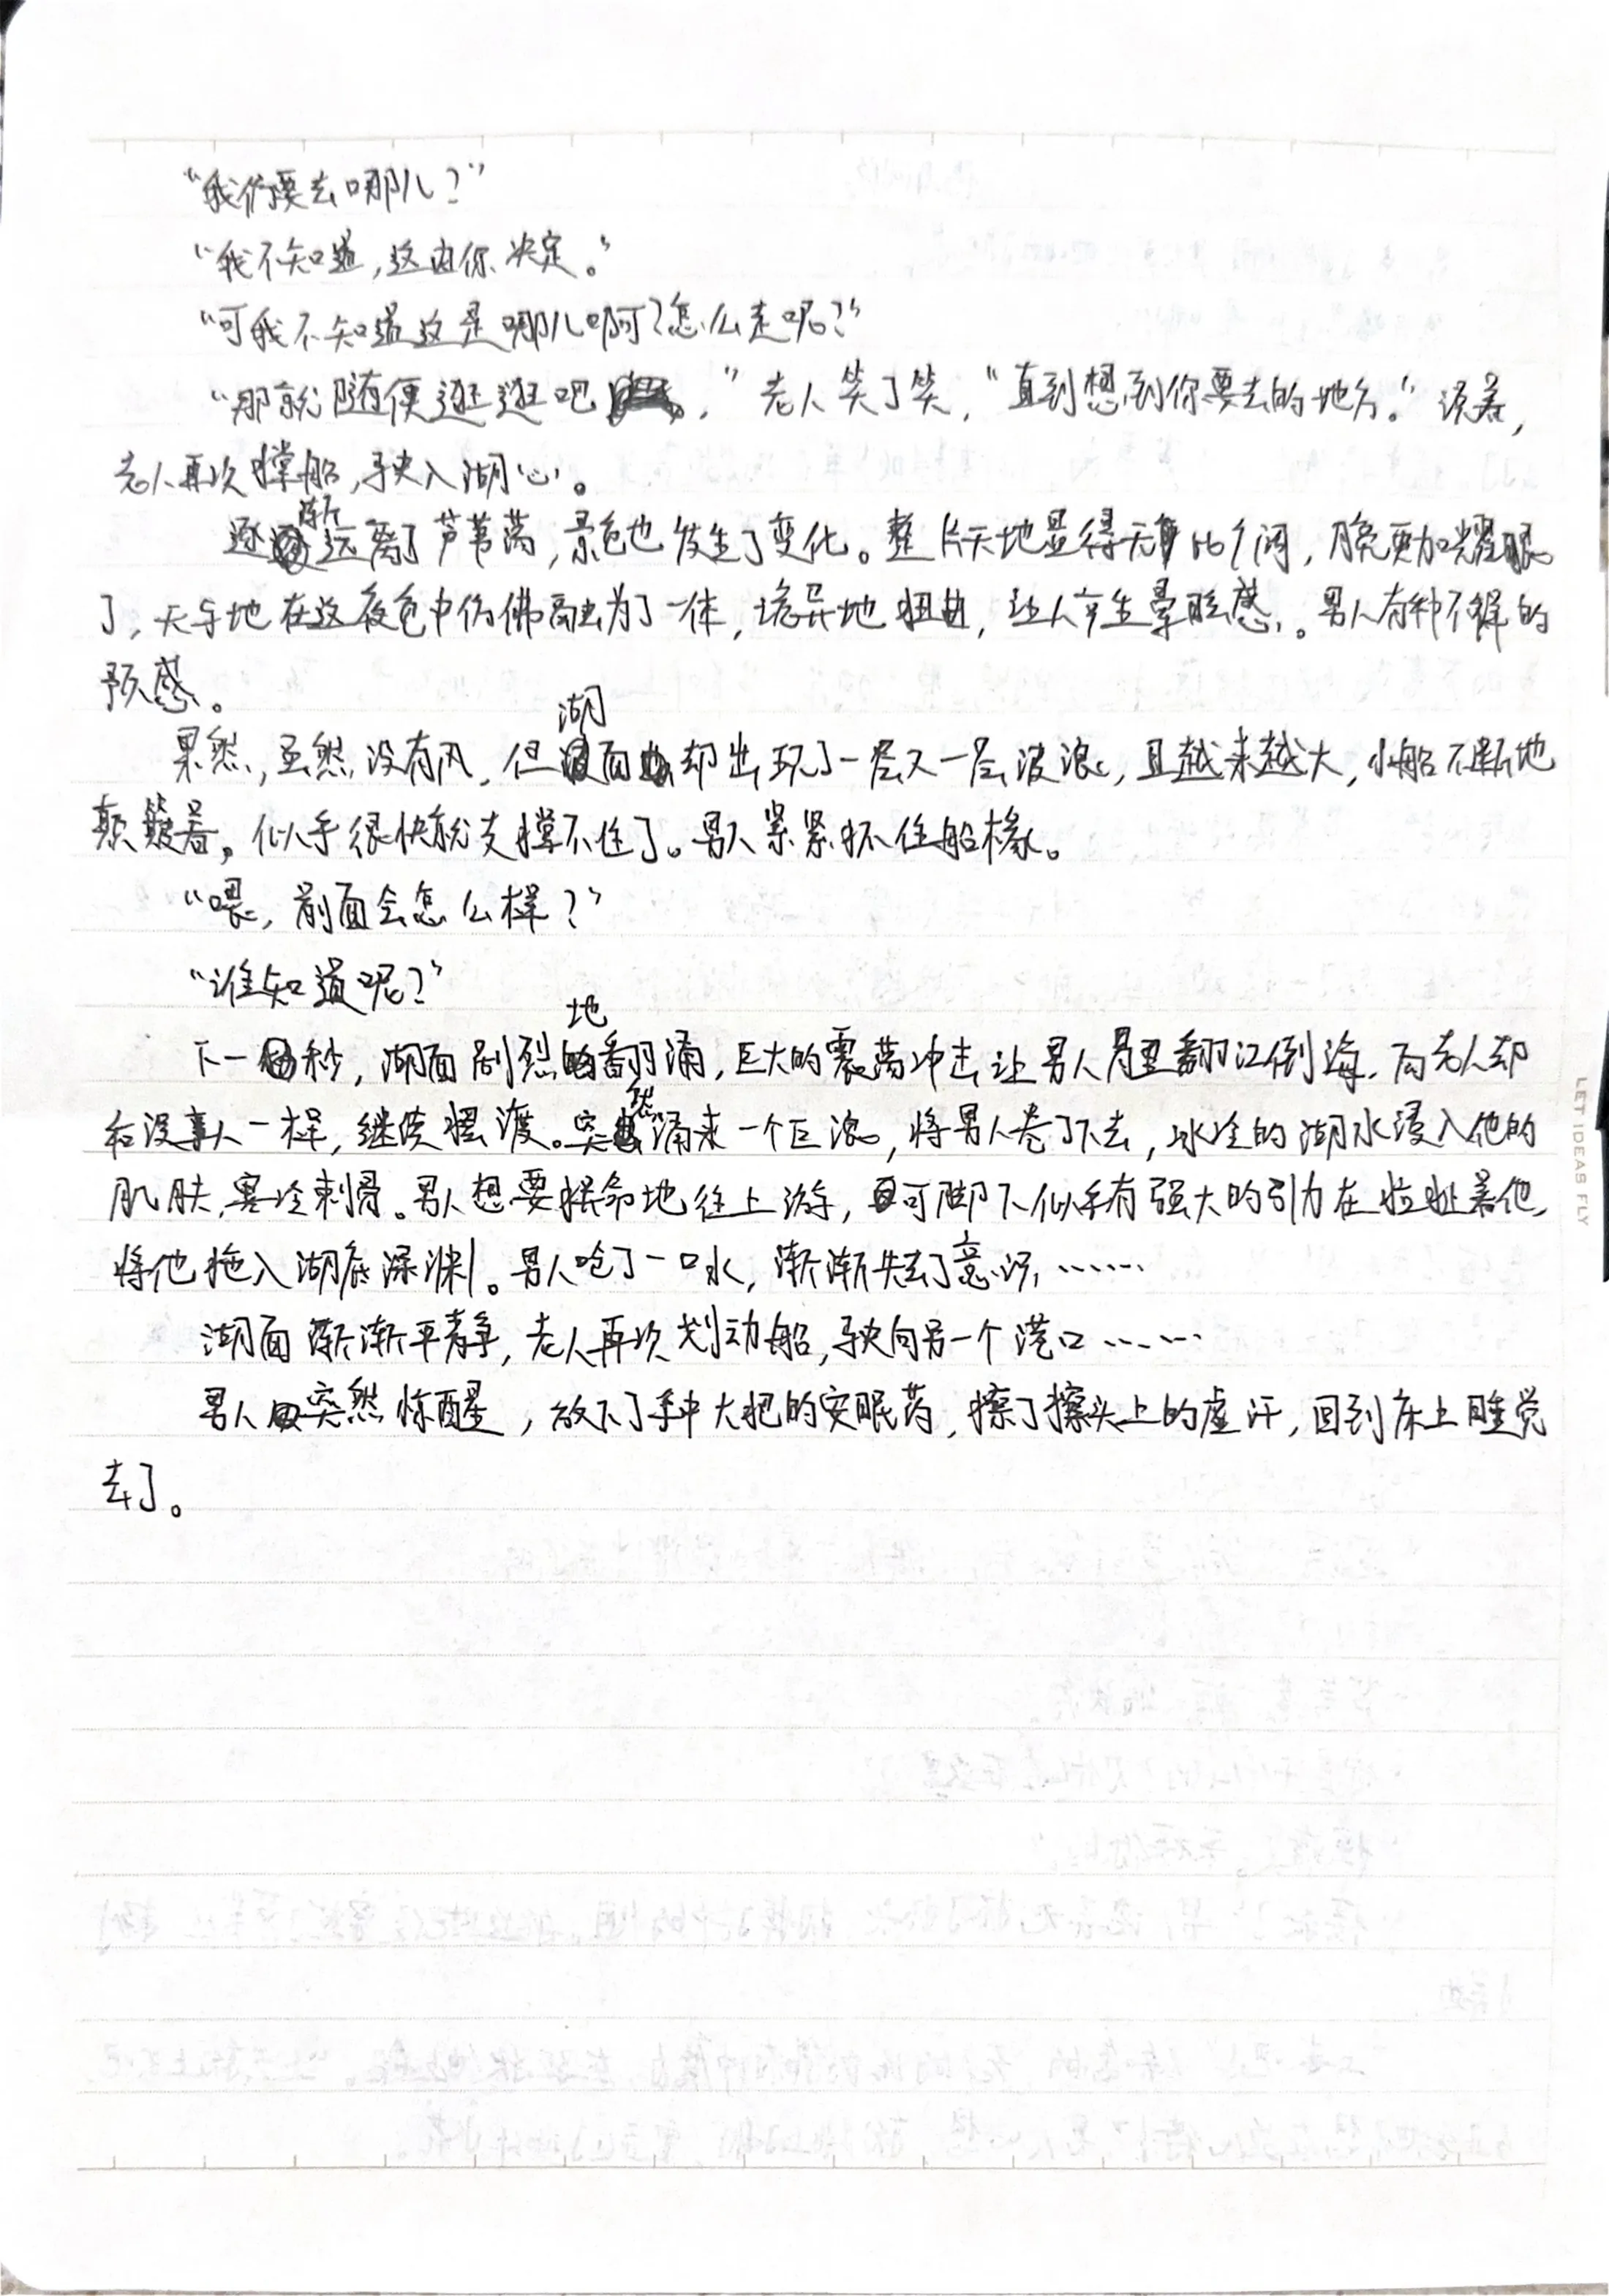 “我们要去哪儿？”
“我不知道，这由你决定。”
“可我不知道这是哪儿啊？怎么走呢？”
“那就随便逛逛吧，”老人笑了笑，“直到想到你要去的地方。”说着，
老人再次撑船，驶入湖心。
逐渐远离了芦苇荡，景色也发生了变化。整片天地显得无比广阔，月亮更加耀眼
了，天与地在这夜色中仿佛融为了一体，诡异地扭曲，让人产生晕眩感。男人有种不祥的
预感。
果然，虽然没有风，但湖面却出现了一层又一层波浪，且越来越大，小船不断地
颠簸着，似乎很快就支撑不住了。男人紧紧抓住船橼。
“喂，前面会怎么样？”
“谁知道呢？”
下一秒，湖面剧烈地翻涌，巨大的震荡冲击让男人胃里翻江倒海，而老人却
和没事人一样，继续摆渡。突然涌来一个巨浪，将男人卷了下去，冰冷的湖水浸入他的
肌肤，寒冷刺骨。男人想要拼命地往上游，可脚下似乎有强大的引力在拉扯着他，
将他拖入湖底深渊。男人呛了一口水，渐渐失去了意识……
湖面渐渐平静，老人再次划动船，驶向另一个港口……
男人突然惊醒，放下了手中大把的安眠药，擦了擦头上的虚汗，回到床上睡觉
去了。
LET IDEAS FLY